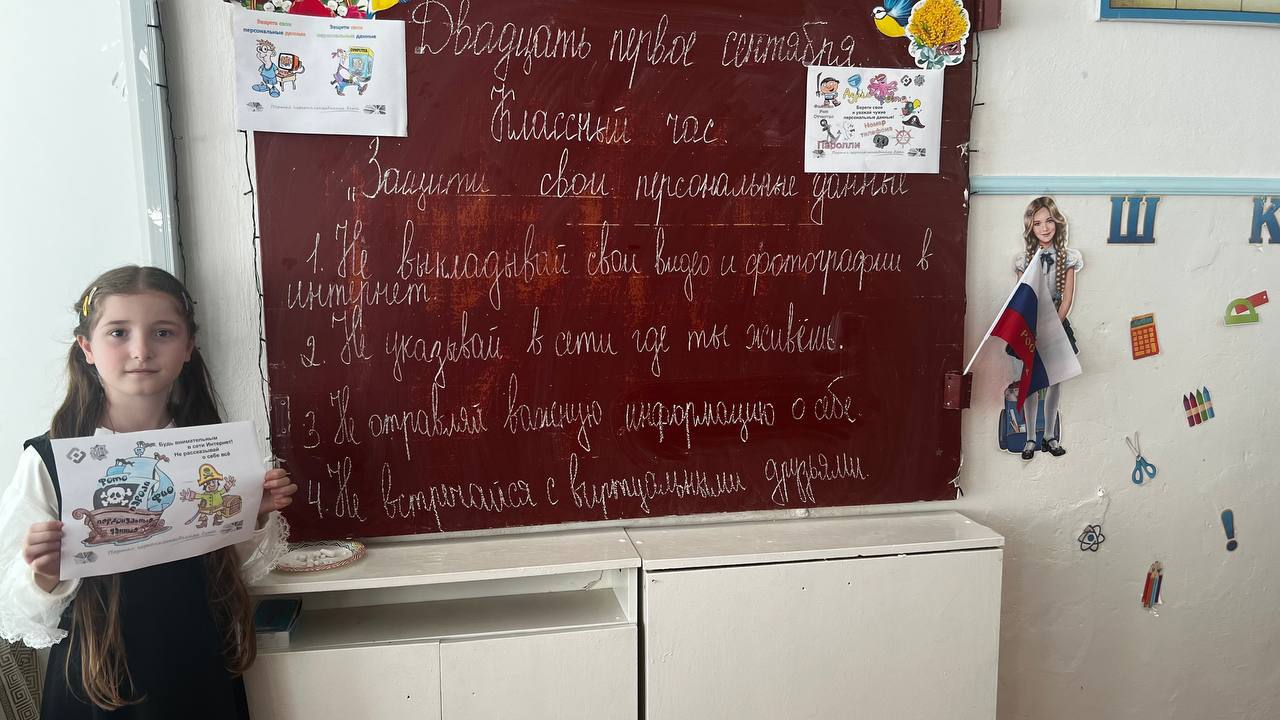 Защити свои
персональные данные
Защити свои
персональные данные
Двадцать первое сентября.
Классный час.
„Защити свои персональные данные
1. Не выкладывай свои видео и фотографии в
интернет.
2. Не указывай в сети где ты живёшь.
3. Не отравляй важную информацию о себе.
4. Не встречайся с виртуальными друзьями.
Фамилия
Имя
Отчество
Береги свои
и уважай чужие
персональные данные!
Номер
телефона
Паролли
Ш
К
Будь внимательным
в сети Интернет!
Не рассказывай
о себе всё
Фото
Фио
персональные
данные